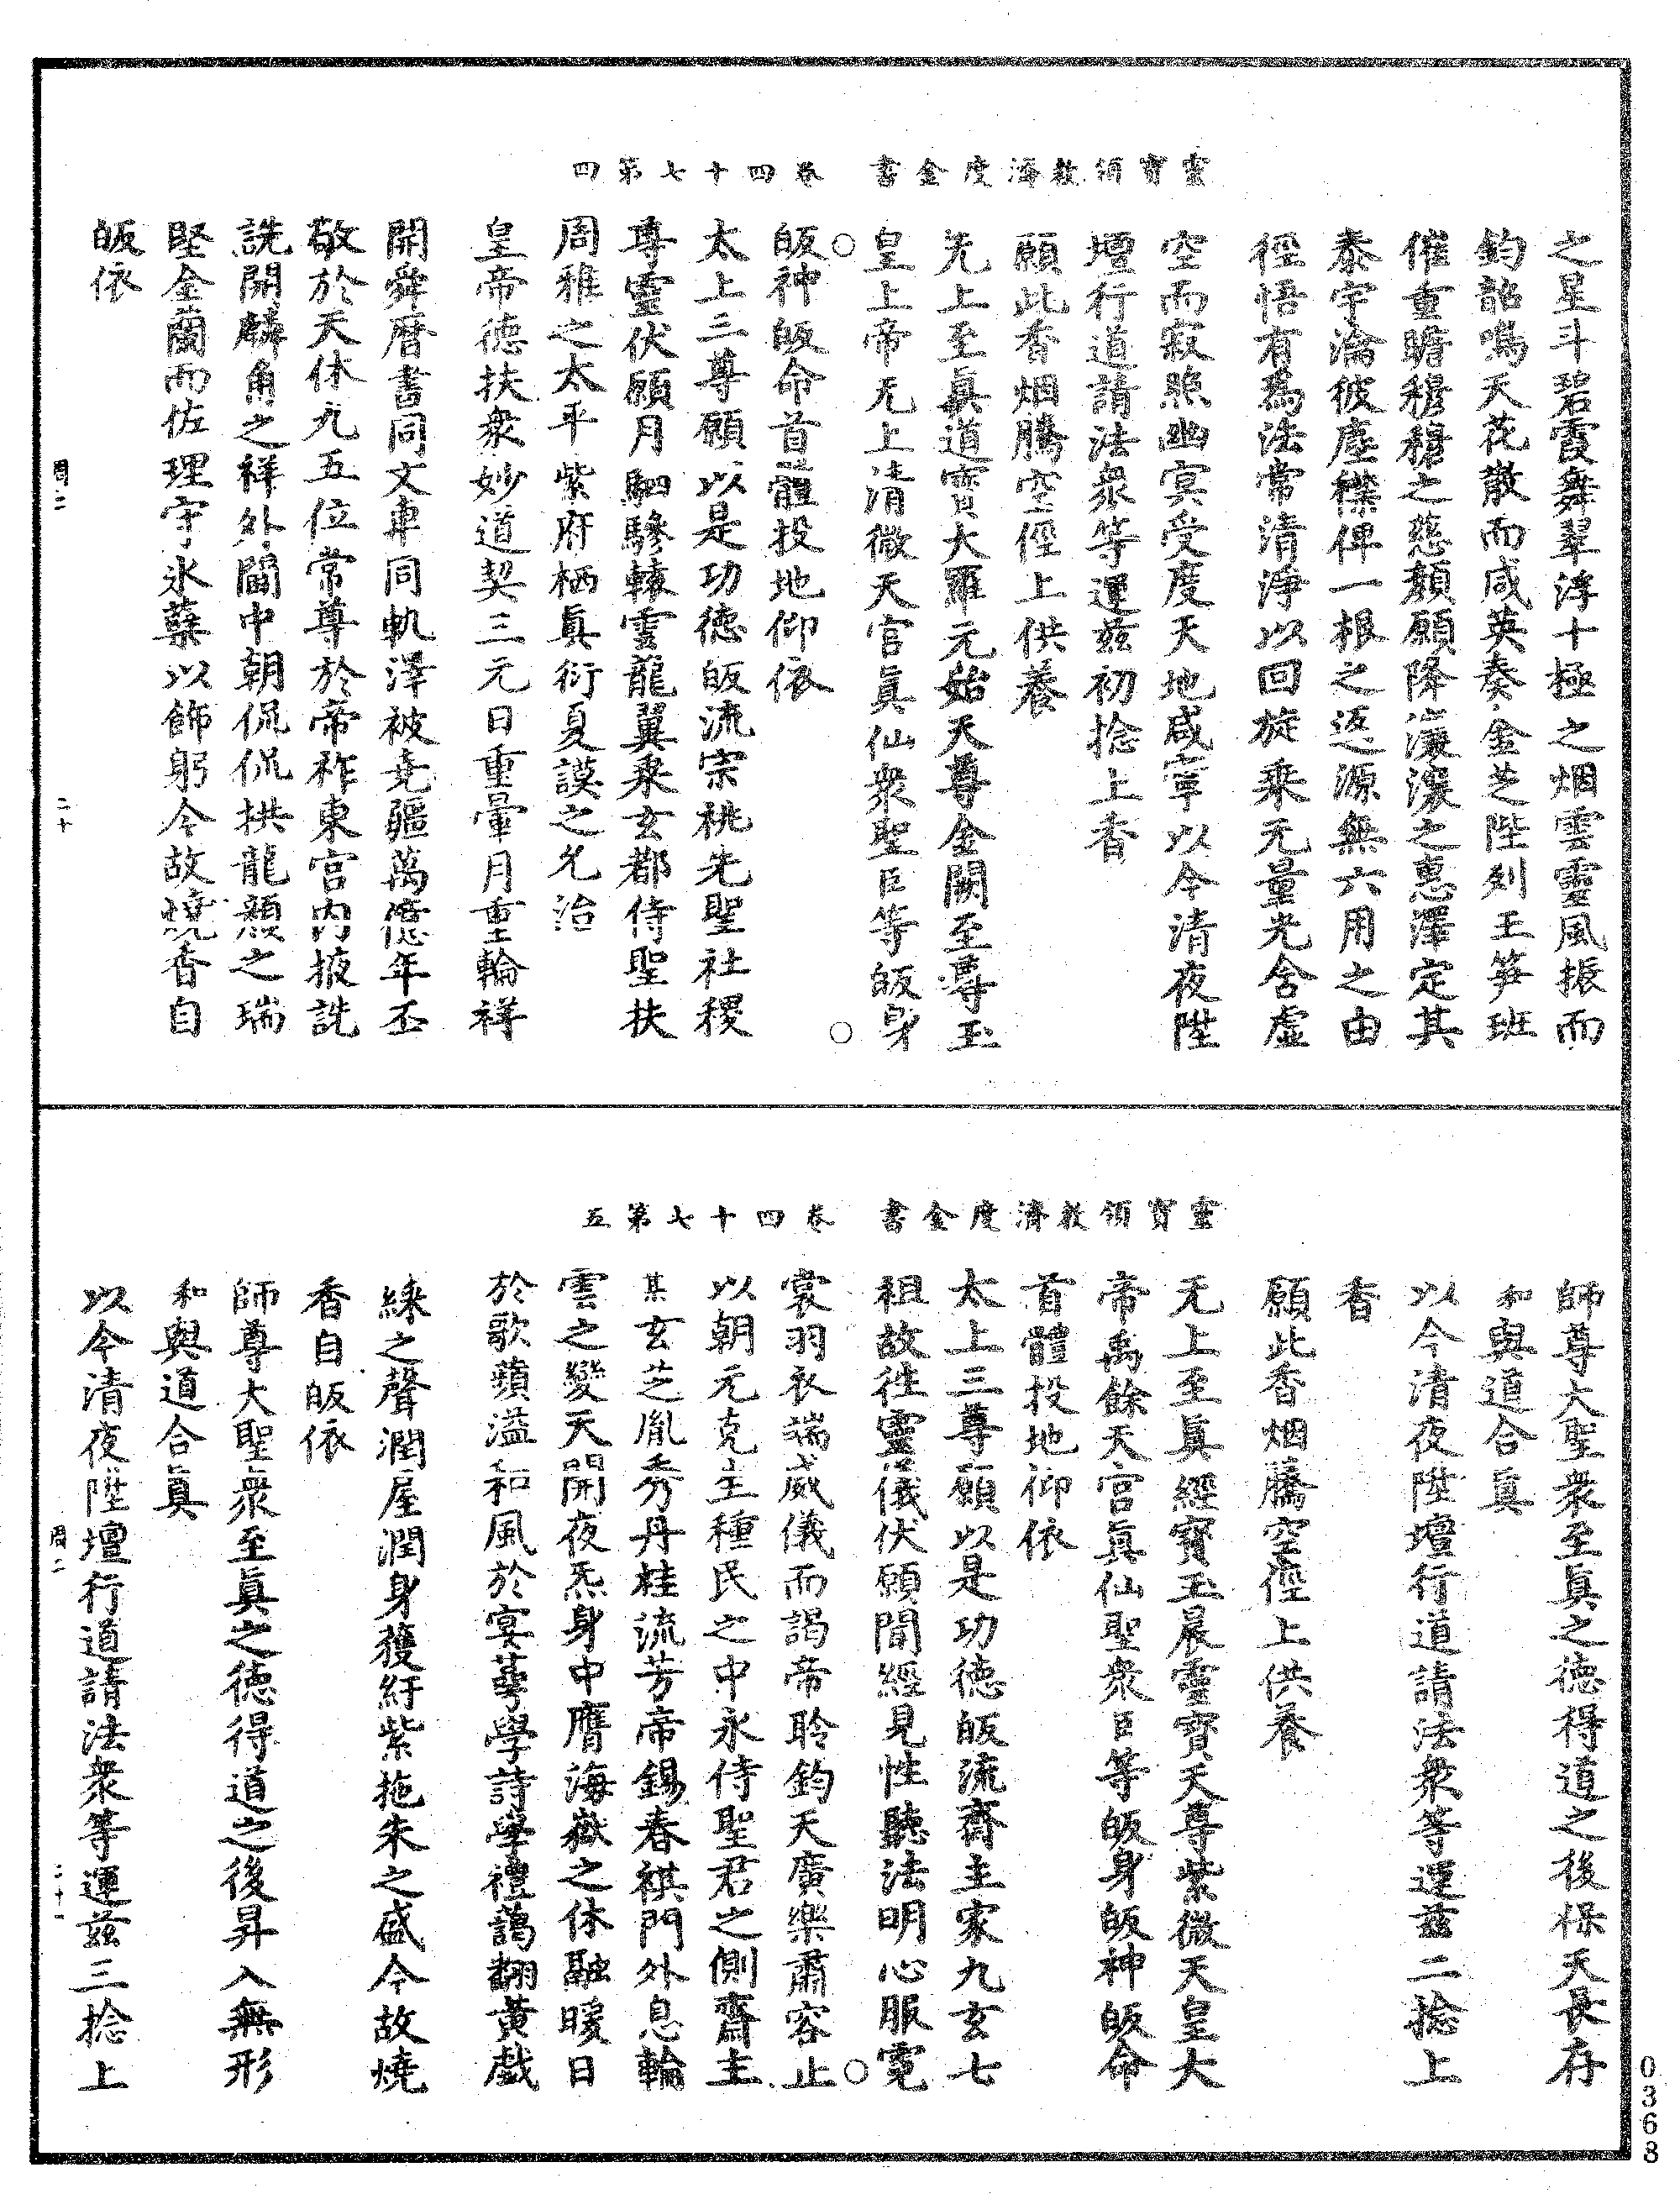 靈寶領教濟度金書　卷四十七第四
之星斗碧霞舞翠浮十極之烟雲靈風振而
鈞韶鳴天花散而咸英奏金芝陛列玉笋班
催重瞻穆穆之慈顏願降瀼瀼之惠澤定其
泰宇淪彼塵襟俾一根之返源無六用之由
徑悟有爲法常清淨以回旋乘无量光舍虛
空而寂照幽冥受度天地咸寧以今清夜陞
壇行道請法衆等運茲初捻上香
願此香烟騰空徑上供養
无上至眞道寶大羅元始天尊金闕至尊玉
皇上帝无上清微天官眞仙衆聖臣等皈身
○皈神皈命首體投地仰依○
太上三尊願以是功德皈流宗桃先聖社稷
尊靈伏願月駟驂轅雲龍翼乘玄都侍聖扶
周雅之太平紫府栖眞衍夏謨之允治
皇帝德扶衆妙道契三元日重暈月重輪祥
開舜曆書同文車同軌澤被堯疆萬億年丕
敬於天休九五位常尊於帝祚東宮內掖詵
詵開麟角之祥外閫中朝侃侃拱龍顏之瑞
堅金蘭而佐理守氷蘗以飾躬今故燒香自
皈依
周二　二十
靈寶領教濟度金書　卷四十七第五
師尊大聖衆至眞之德得道之後保天長存
和與道合眞
以今清夜陞壇行道請法衆等運茲二捻上
香
願此香烟騰空徑上供養
无上至眞經寶玉晨靈寶天尊紫微天皇大
帝禹餘天宮眞仙聖衆臣等皈身皈神皈命
首體投地仰依
太上三尊願以是功德皈流齋主家九玄七
祖故往靈儀伏願聞經見性聽法明心服霓
裳羽衣端威儀而謁帝聆鈞天廣樂肅容止○
以朝元克主種民之中永侍聖君之側齋主
某玄芝胤秀丹桂流芳帝錫春祺門外息輪
雲之變天開夜炁身中膺海嶽之休融暖日
於歌蘋溢和風於宴萼學詩學禮藹翻黃戲
綵之聲潤屋潤身獲紆紫拖朱之盛今故燒
香自皈依
師尊大聖衆至眞之德得道之後昇入無形
和與道合眞
以今清夜陞壇行道請法衆等運茲三捻上
周二　二十一
0368